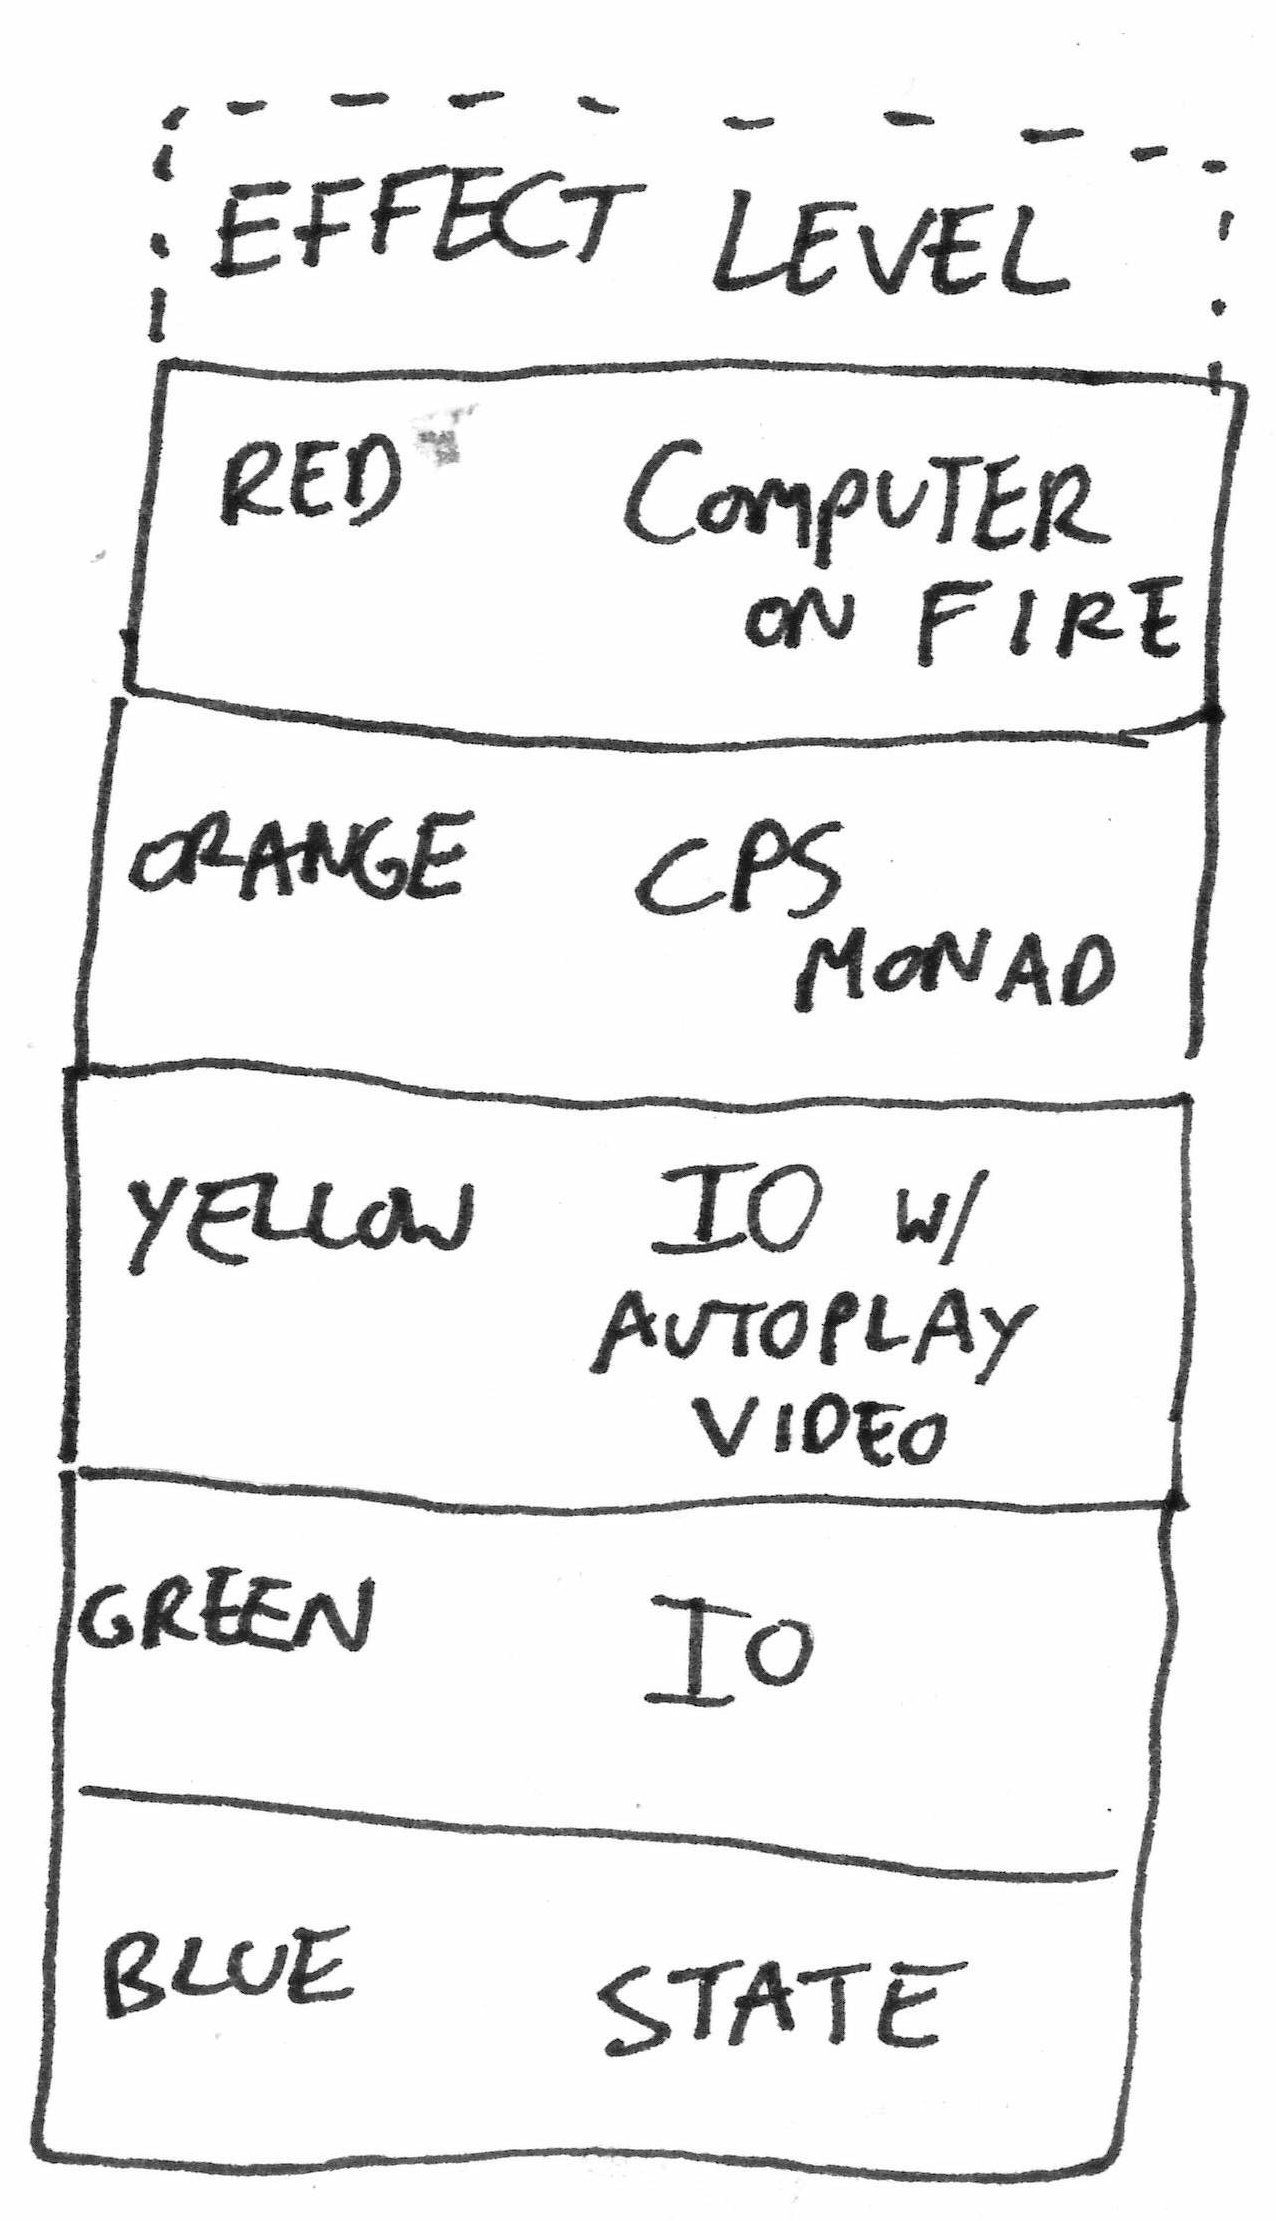 EFFECT LEVEL
RED COMPUTER
ON FIRE
ORANGE CPS
MONAD
YELLOW IO W/
AUTOPLAY
VIDEO
GREEN IO
BLUE STATE